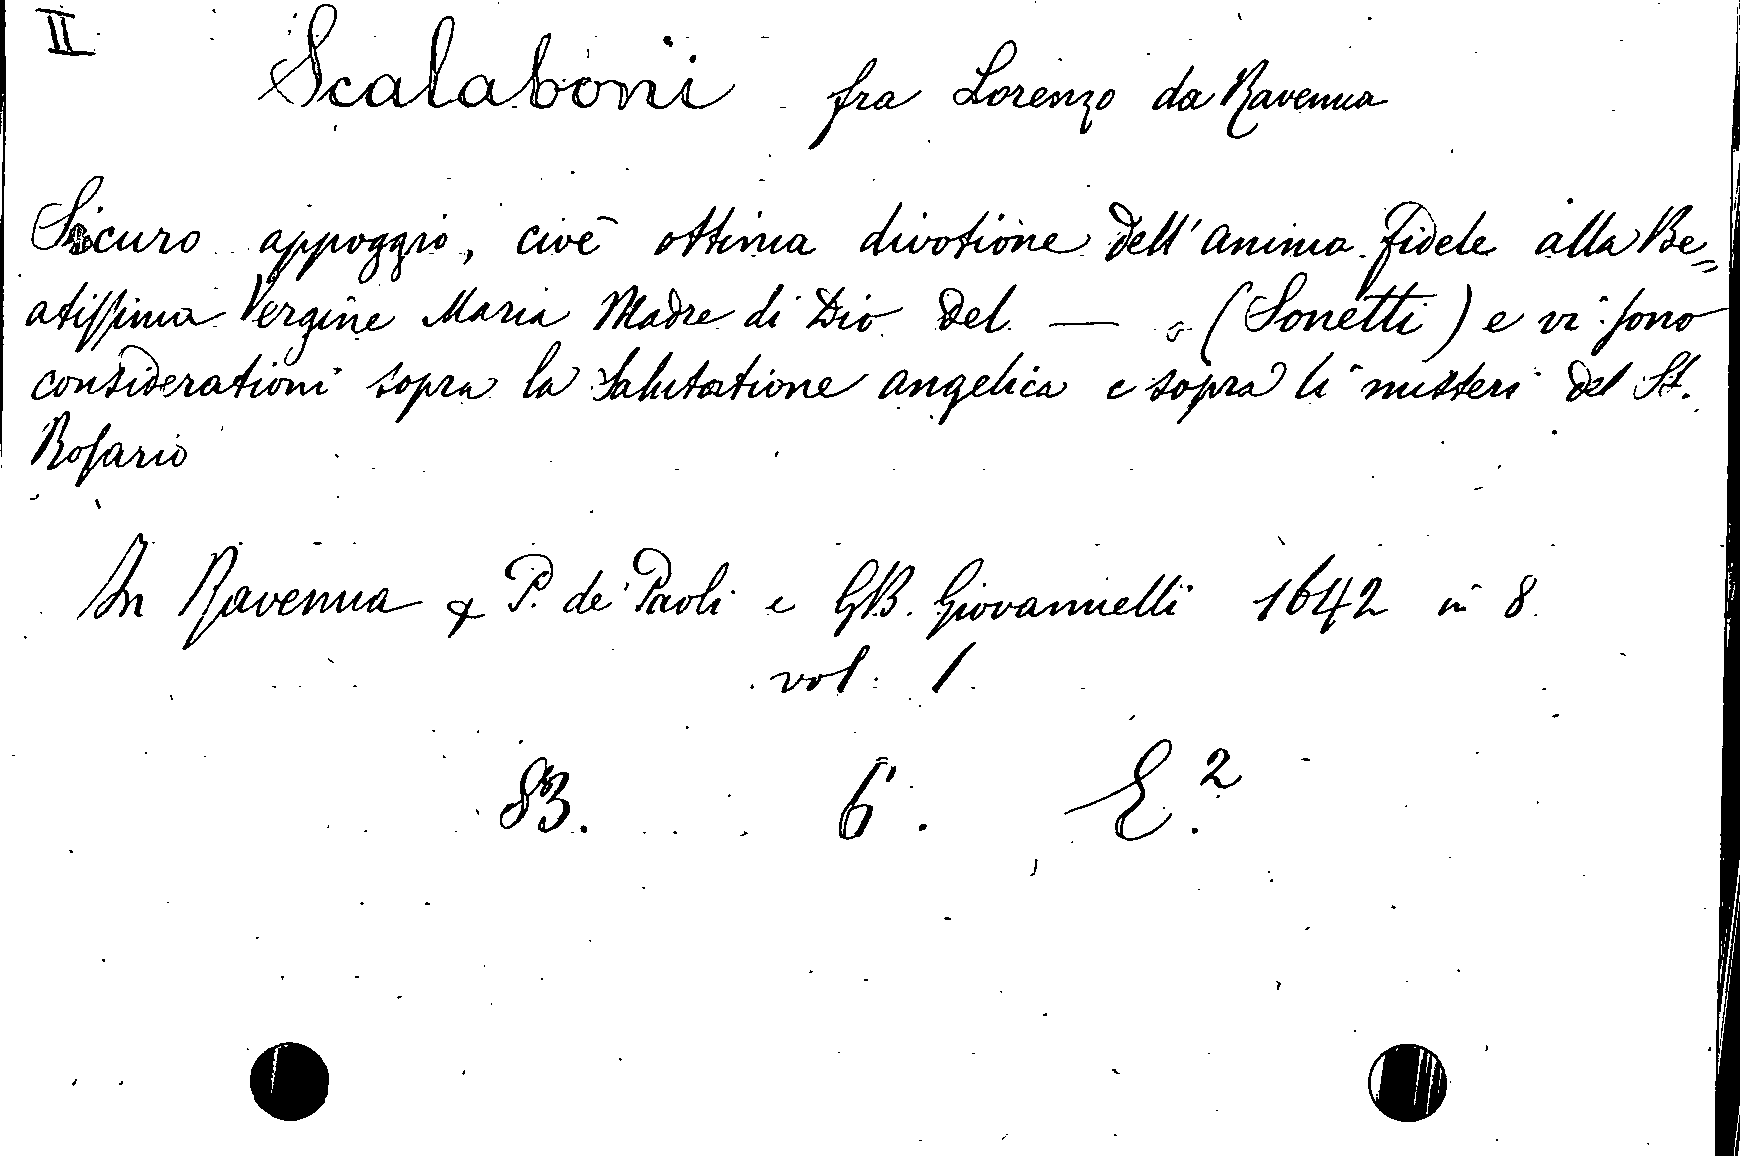 II
Scalaboni fra Lorenzo da Ravenna
Sicuro appoggio, cioè ottima divotione dell'anima fidele alla Be„
atissima Vergine Maria Madre di Dio del — (Sonetti) e vi sono
considerationi sopra la Salutatione angelica e sopra li misteri del St.
Rosario
In Ravenna P. de' Paoli e GB. Giovannelli 1642 in 8.
vol. 1
83. 6. E.²